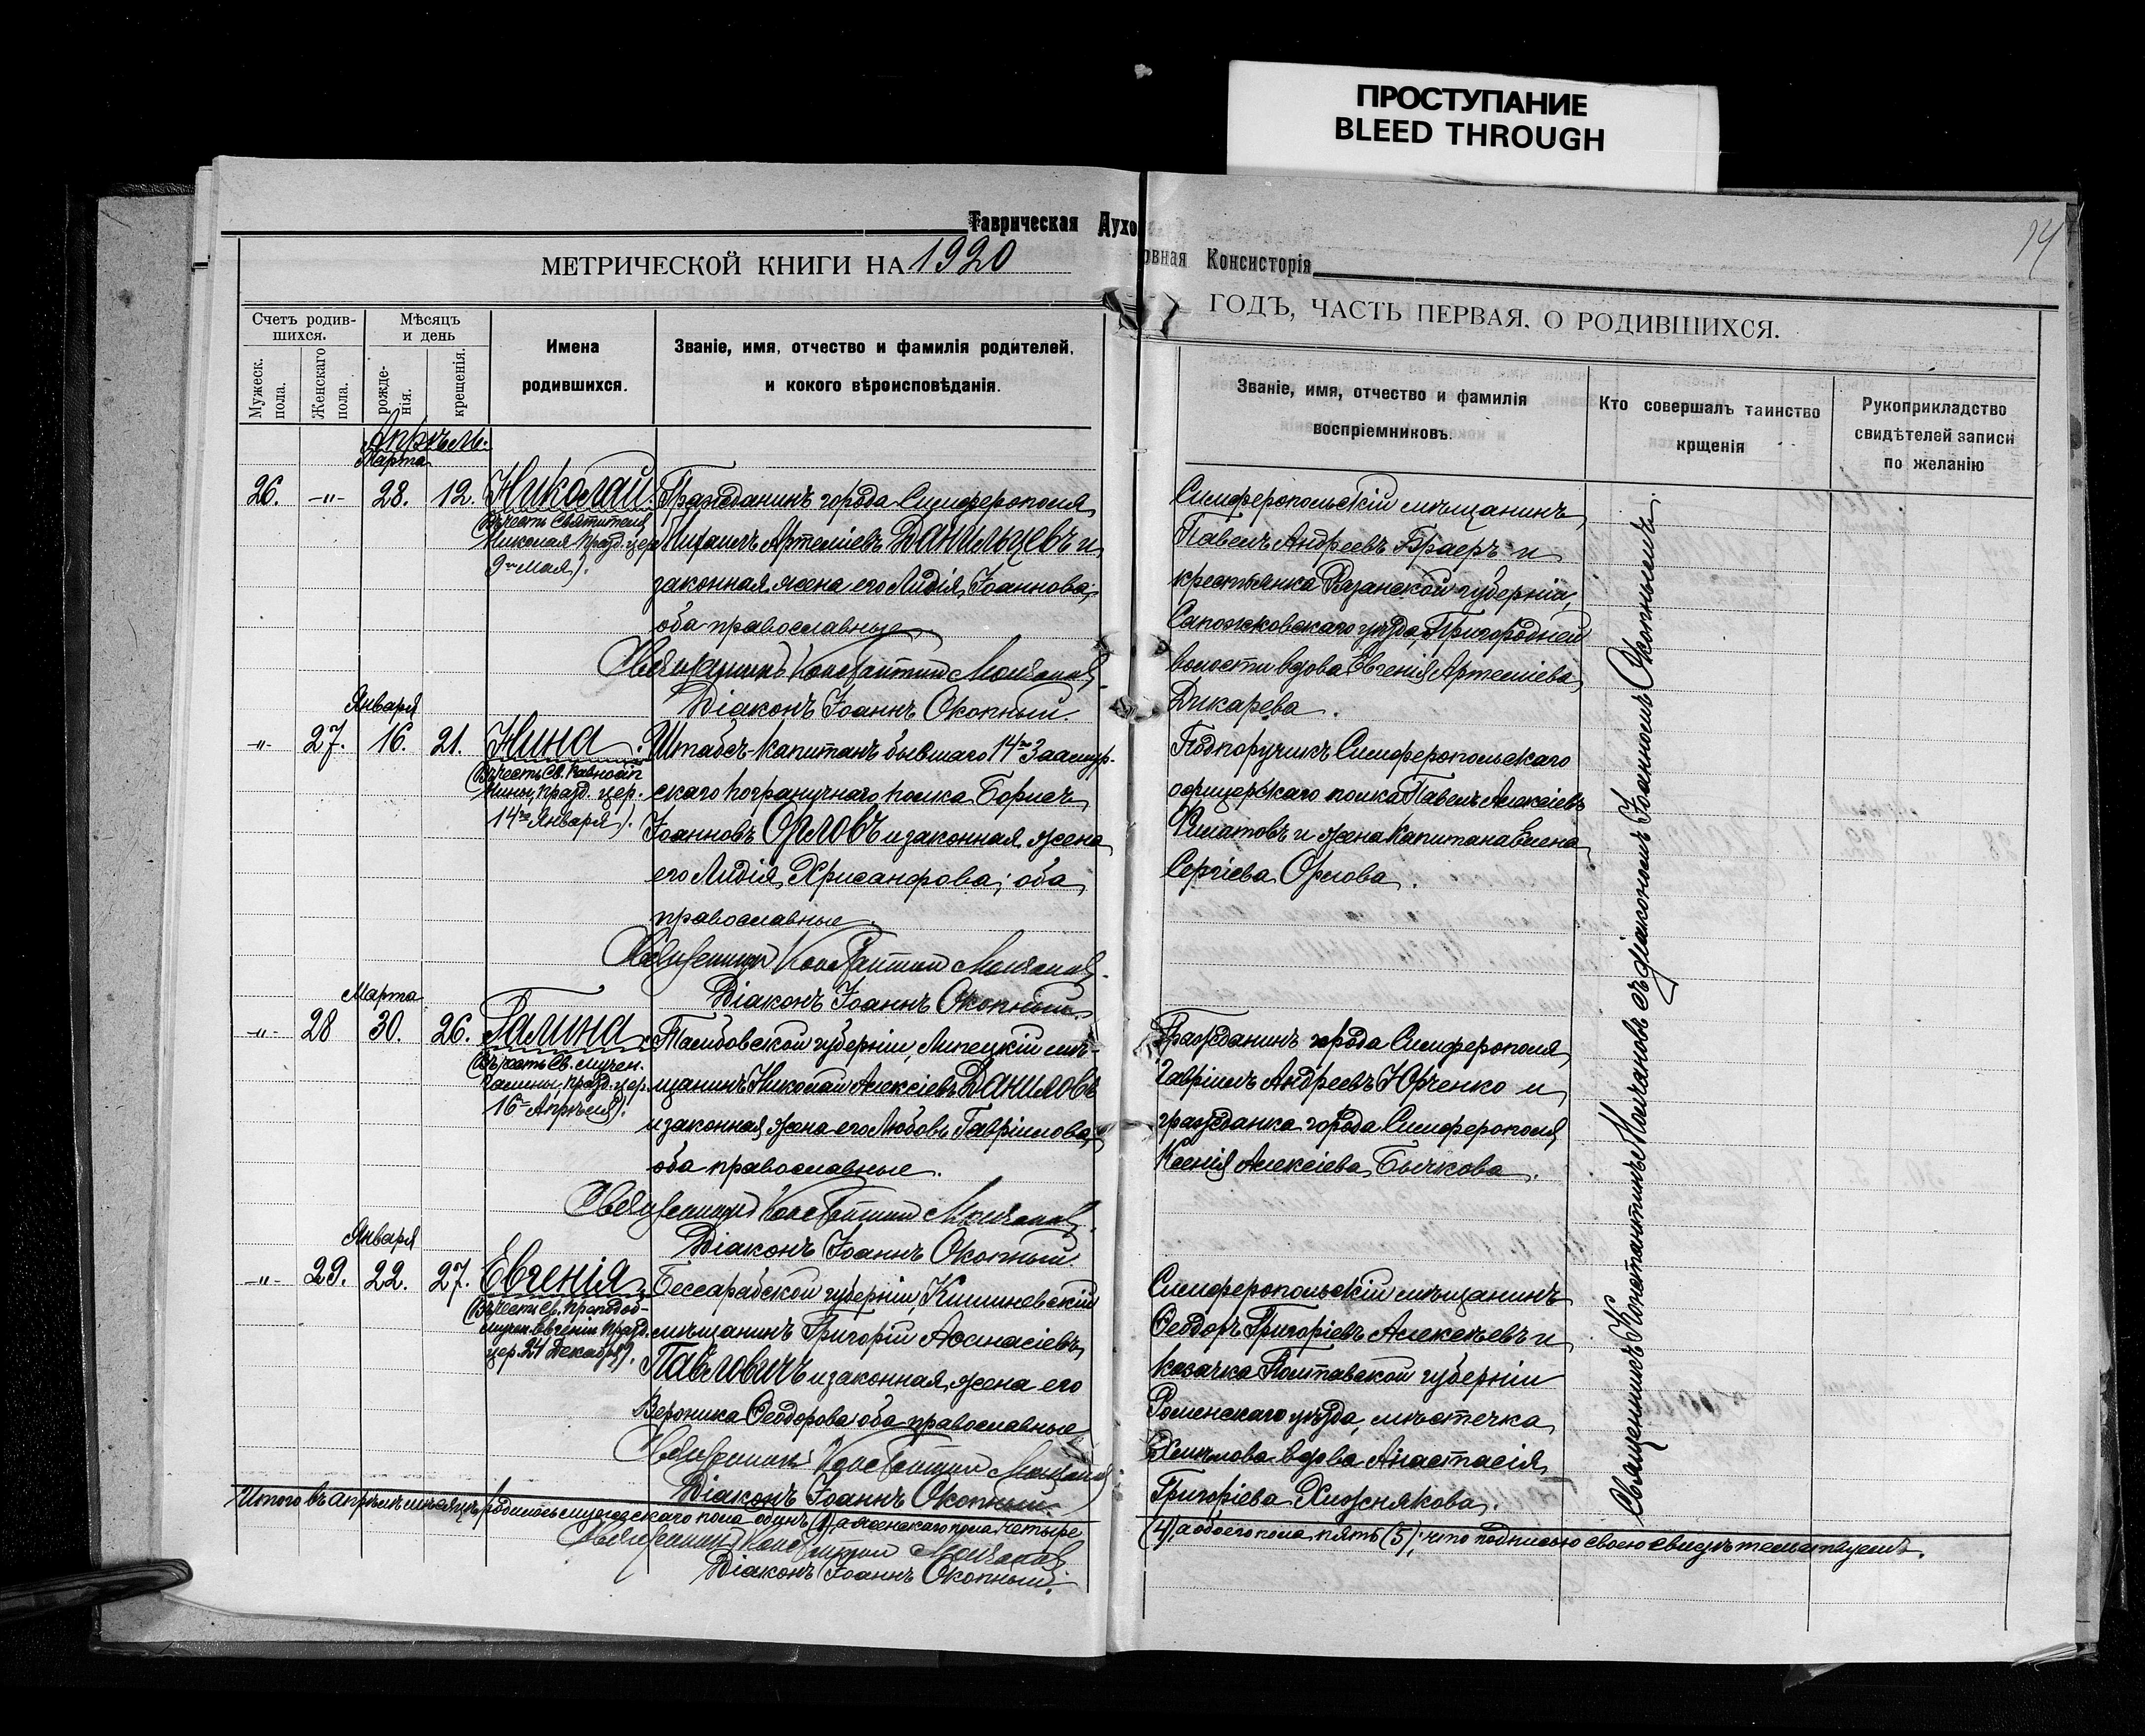 ПРОСТУПАНИЕ
BLEED THROUGH
14
Таврическая Духо
овная Консисторія
МЕТРИЧЕСКОЙ КНИГИ НА 1920
ГОДЪ, ЧАСТЬ ПЕРВАЯ, О РОДИВШИХСЯ.
Счетъ родив-
шихся.
Мужеск.
пола.
Женскаго
пола.
Мѣсяцъ
и день
рожде-
нія.
крещенія.
Имена
родившихся.
Званіе, имя, отчество и фамилія родителей,
и кокого вѣроисповѣданія.
Званіе, имя, отчество и фамилія
воспріемниковъ.
Кто совершалъ таинство
крщенія
Рукоприкладство
свидѣтелей записи
по желанію
Апрѣль.
Марта
26. -"- 28. 12. Николай.
(Въ честь Святителя
Николая празд. цер.
9го мая).
Гражданинъ города Симферополя
Михаилъ Артеміевъ Данильцевъ и
законная жена его Лидія Іоаннова;
оба православные.
Священникъ Константинъ Молчановъ
Діаконъ Іоаннъ Окопный.
Симферопольскій мѣщанинъ
Павелъ Андреевъ Браеръ и
крестьянка Рязанской губерніи,
Сапожковскаго уѣзда, Пригородней
волости вдова Евгенія Артеміева
Дикарева.
Января
-"- 27. 16. 21. Нина.
(Въ честь Св. Равноап
Нины, празд. цер.
14го Января).
Штабсъ-капитанъ бывшаго 14го Заамур-
скаго пограничнаго полка Борисъ
Іоанновъ Орловъ и законная жена
его Лидія Хрисанфова; оба
православные.
Священникъ Константинъ Молчановъ
Діаконъ Іоаннъ Окопный.
Подпоручикъ Симферопольскаго
офицерскаго полка Павелъ Алексіевъ
Филатовъ и жена капитана Елена
Сергіева Орлова.
Марта
-"- 28 30. 26. Галина
(Въ честь Св. мучен.
Галины, празд. цер.
16го Апрѣля).
Тамбовской губерніи, Липецкій мѣ-
щанинъ Николай Алексіевъ Даниловъ
и законная жена его Любовь Гавріилова,
оба православные.
Священникъ Константинъ Молчановъ
Діаконъ Іоаннъ Окопный
Гражданинъ города Симферополя
Гавріилъ Андреевъ Юрченко и
гражданка города Симферополя
Ксенія Алексіева Бычкова.
Января
-"- 29. 22. 27. Евгенія
(Въ честь Св. преподоб-
мучен. Евгеніи празд.
цер. 24 Декабря).
Бессарабской губерніи, Кишиневскій
мѣщанинъ Григорій Аѳанасіевъ
Павловичъ и законная жена его
Вероника Ѳеодорова; оба православные
Священникъ Константинъ Молчановъ
Діаконъ Іоаннъ Окопный.
Симферопольскій мѣщанинъ
Ѳеодоръ Григоріевъ Алексѣевъ и
казачка Полтавской губерніи
Роменскаго уѣзда, мѣстечка
Хмѣлова вдова Анастасія
Григоріева Хижнякова.
Священникъ Константинъ Молчановъ съ діакономъ Іоанномъ Окопнымъ
Итого въ апрѣлѣ мѣсяцѣ родилось мужескаго пола одинъ (1), а женскаго пола четыре
(4), а обоего пола пять (5); что подписью своею свидѣтельствуемъ.
Священникъ Константинъ Молчановъ
Діаконъ Іоаннъ Окопный.